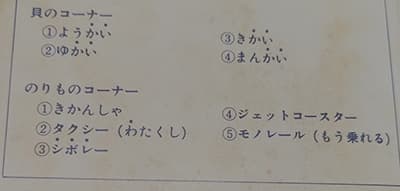 貝のコーナー
①ようかい
②ゆかい
③きかい
④まんかい
のりものコーナー
①きかんしゃ
②タクシー（わたくし）
③シボレー
④ジェットコースター
⑤モノレール（もう乗れる）